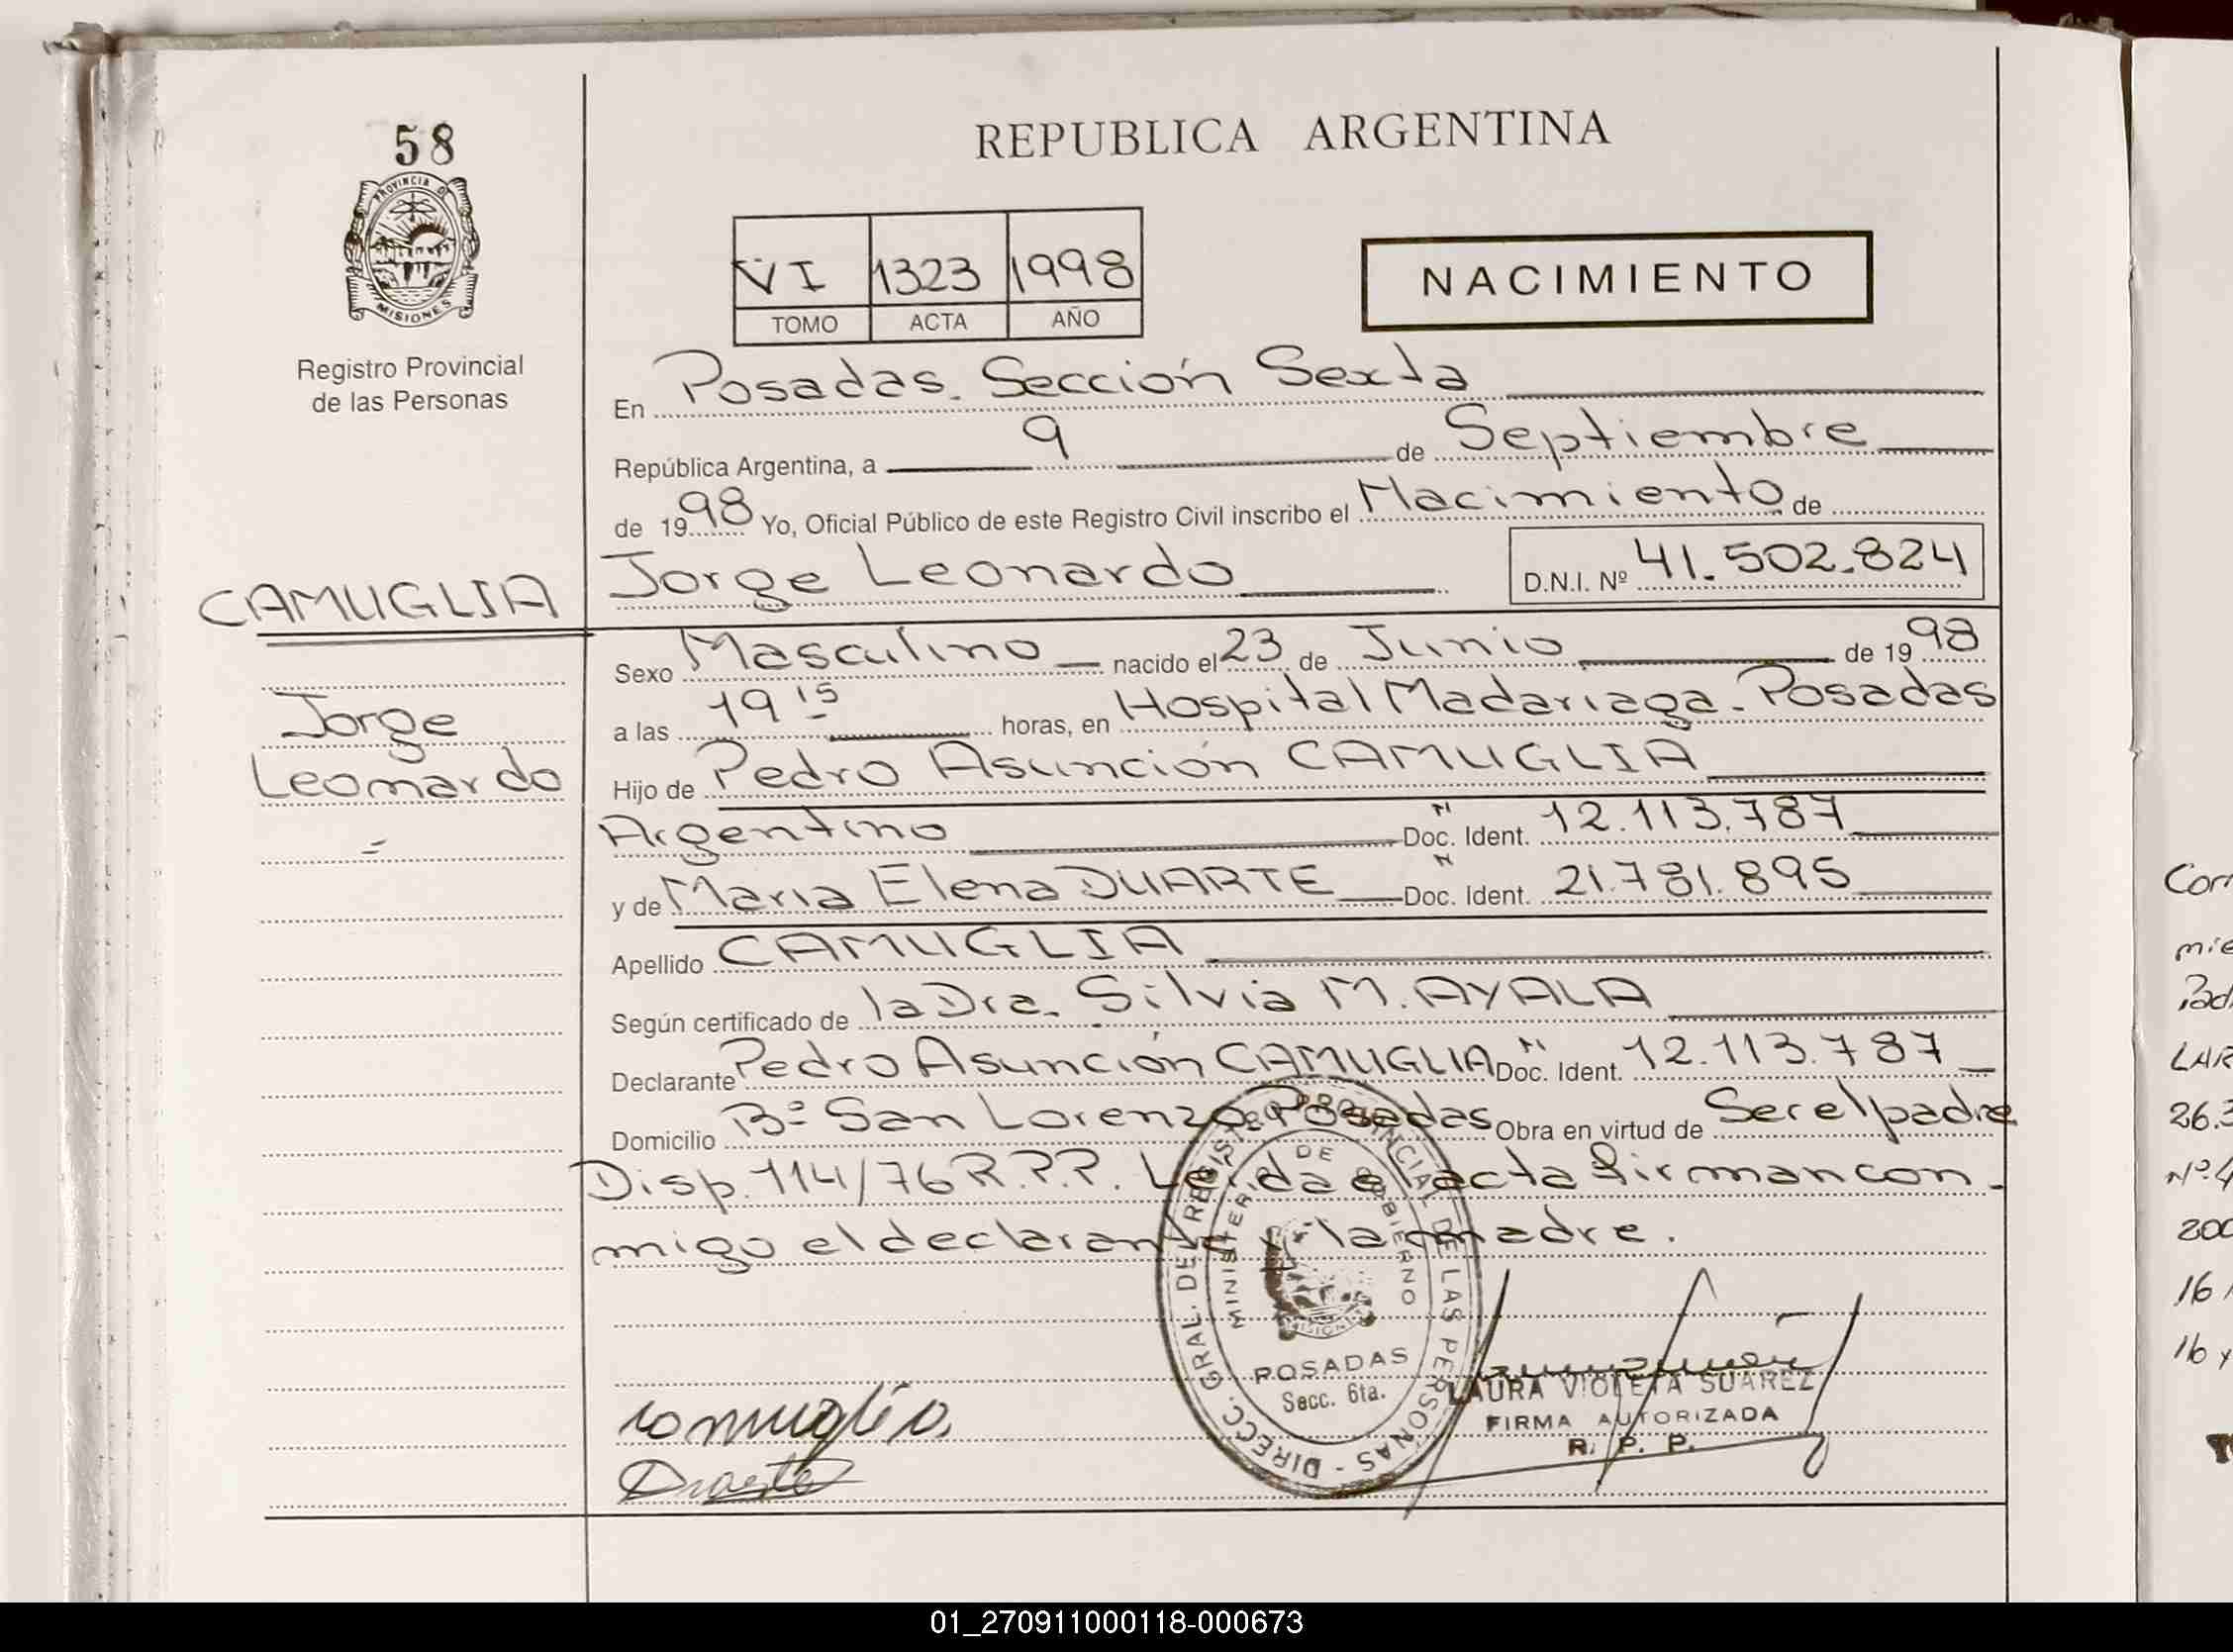 58
PROVINCIA DE
MISIONES
Registro Provincial
de las Personas
REPUBLICA ARGENTINA
VI 1323 1998
TOMO ACTA AÑO
NACIMIENTO
En Posadas. Sección Sexta
República Argentina, a 9 de Septiembre
de 1998 Yo, Oficial Público de este Registro Civil inscribo el Nacimiento de
CAMUGLIA Jorge Leonardo D.N.I. Nº 41.502.824
Sexo Masculino nacido el 23 de Junio de 1998
Jorge
Leonardo
a las 19 15 horas, en Hospital Madariaga. Posadas
Hijo de Pedro Asunción CAMUGLIA
Argentino N Doc. Ident. 12.113.787
y de Maria Elena DUARTE N Doc. Ident. 21.781.895
Apellido CAMUGLIA
Según certificado de la Dra. Silvia M. AYALA
Declarante Pedro Asunción CAMUGLIA N Doc. Ident. 12.113.787
Domicilio Bº San Lorenzo. Posadas Obra en virtud de Ser el padre
Disp. 114/76 R.P.P. Leida el acta firman con-
migo el declarante y la madre.
DIRECC. GRAL. DEL REGISTRO PROVINCIAL DE LAS PERSONAS -
MINISTERIO DE GOBIERNO
MISIONES
POSADAS
Secc. 6ta.
LAURA VIOLETA SUAREZ
FIRMA AUTORIZADA
R. P. P.
Camuglia
Duarte
Cor
mie
Pad
LAR
26.3
Nº 4
200
16
16 y
01_270911000118-000673